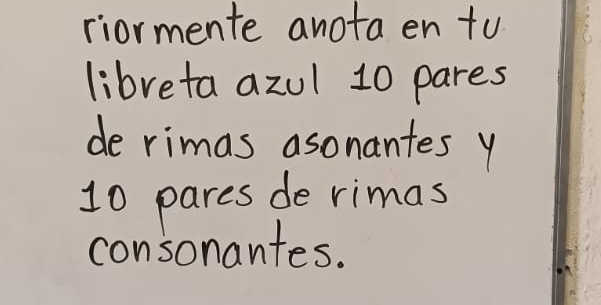 riormente anota en tu
libreta azul 10 pares
de rimas asonantes y
10 pares de rimas
consonantes.